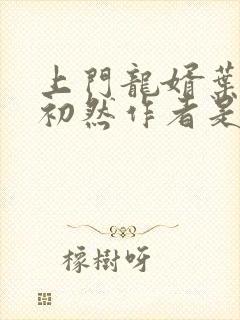 上門龍婿葉
初然作者是
橡樹呀